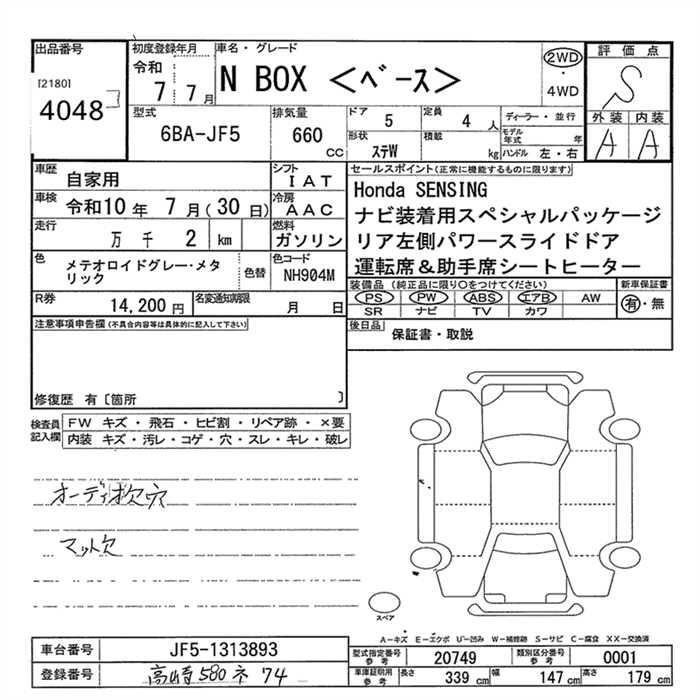 出品番号
[2180]
4048
初度登録年月
令和
7 7月
車名・グレード
N BOX <ベース>
2WD
・
4WD
評価点
S
外装 内装
A A
型式
6BA-JF5
排気量
660
cc
ドア
5
定員
4 人
ディーラー・並行
形状
ステW
積載
kg
モデル年式 年
ハンドル 左・右
車歴
自家用
シフト
IAT
車検
令和10年 7月(30日)
冷房
AAC
走行
万 千 2 km
燃料
ガソリン
色
メテオロイドグレー・メタリック
色替
色コード
NH904M
R券
14,200円
名変通知期限
月 日
セールスポイント(正常に機能するものに限ります)
Honda SENSING
ナビ装着用スペシャルパッケージ
リア左側パワースライドドア
運転席&助手席シートヒーター
装備品 (純正品に限り○をつけてください)
PS PW ABS エアB AW
SR ナビ TV カワ
新車保証書
有・無
後日品
保証書・取説
注意事項申告欄(不具合内容等は具体的に記入して下さい)
修復歴 有〔箇所 〕
検査員記入欄
FW キズ・飛石・ヒビ割・リペア跡・×要
内装 キズ・汚レ・コゲ・穴・スレ・キレ・破レ
オーディオ欠穴
マット欠
スペア
A-キズ E-エクボ U-凹み W-補修跡 S-サビ C-腐食 XX-交換済
車台番号
JF5-1313893
登録番号
高崎580ネ74
型式指定番号
参考
20749
類別区分番号
参考
0001
車庫証明用
参考
長さ
339 cm
幅
147 cm
高さ
179 cm